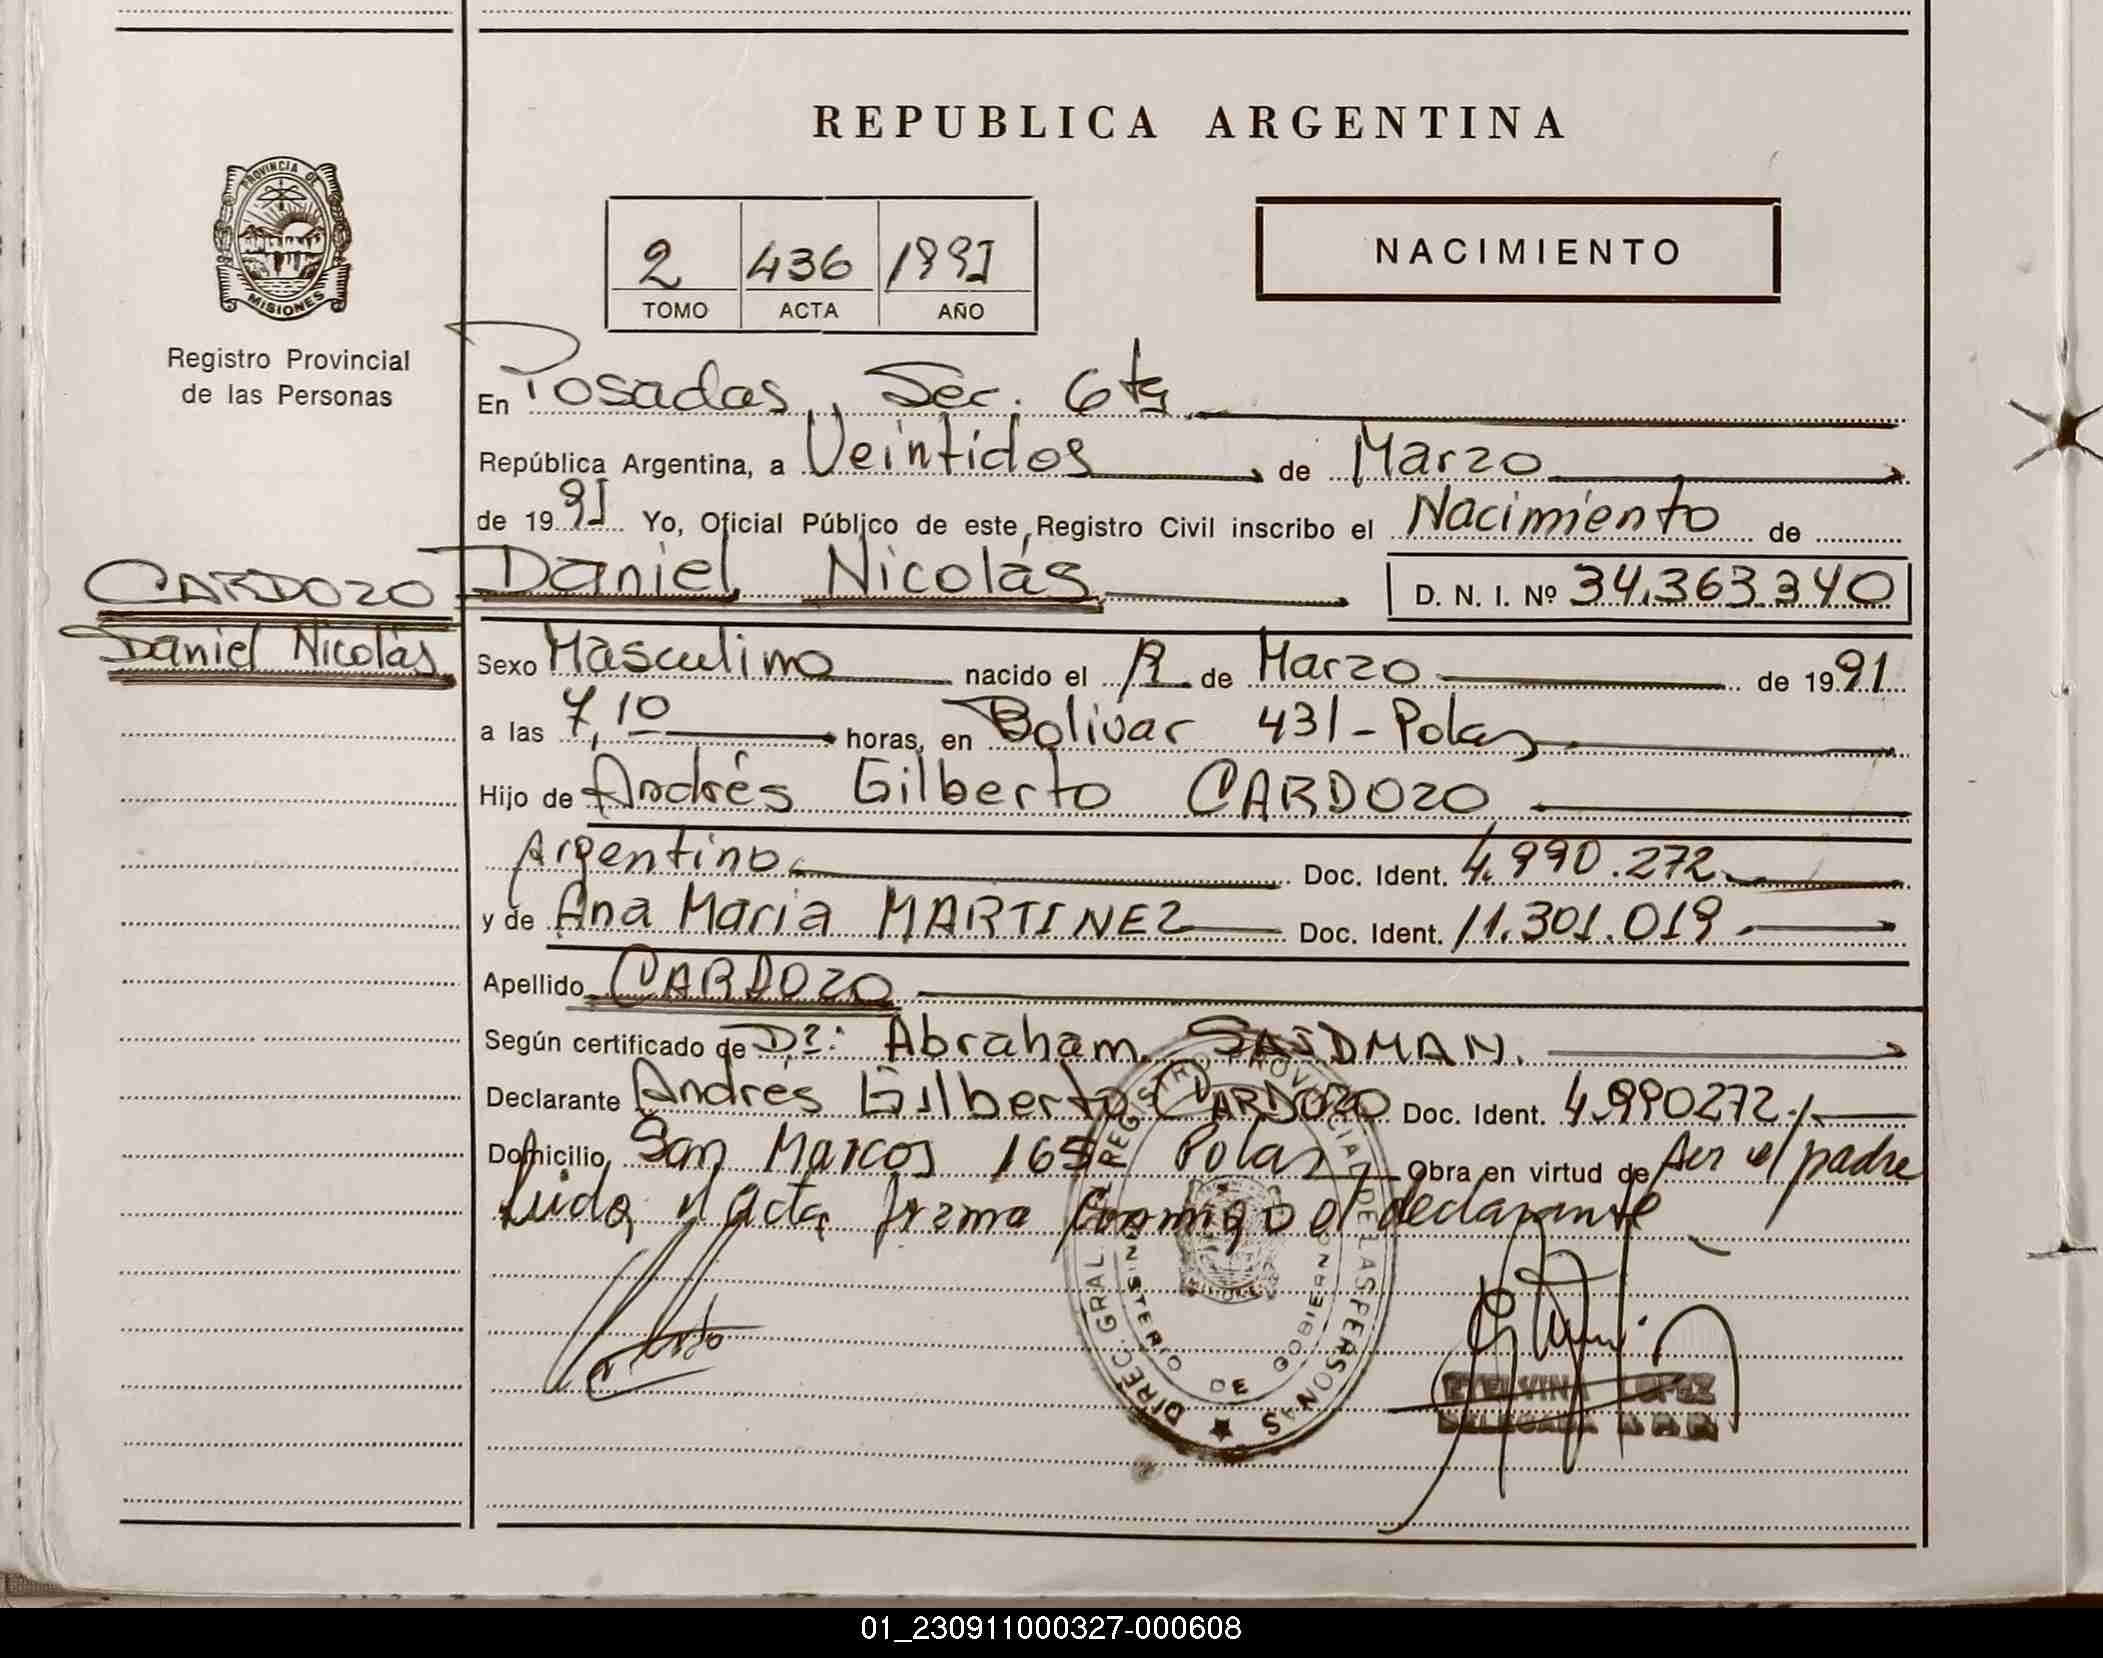 REPUBLICA ARGENTINA
PROVINCIA DE
MISIONES
Registro Provincial
de las Personas
2 436 1991
TOMO ACTA AÑO
NACIMIENTO
En Posadas, Sec. 6ta
República Argentina, a Veintidos de Marzo
de 1991 Yo, Oficial Público de este Registro Civil inscribo el Nacimiento de
CARDOZO
Daniel Nicolás
Daniel Nicolás D. N. I. Nº 34.363.340
Sexo Masculino nacido el de Marzo de 1991
a las 7,10 horas, en Bolivar 431 - Pdas
Hijo de Andrés Gilberto CARDOZO
Argentino Doc. Ident. 4.990.272
y de Ana Maria MARTINEZ Doc. Ident. 11.301.019
Apellido CARDOZO
Según certificado de Dr: Abraham
Declarante Andrés Gilberto CARDOZO Doc. Ident. 4.990272
Domicilio San Marcos 165 Pdas Obra en virtud de ser el padre
Leida el acta firma conmigo el declarante
DIREC. GRAL. REGISTRO PROVINCIAL DE LAS PERSONAS
MINISTERIO DE GOBIERNO
MISIONES
LOPEZ
DELEGADA
01_230911000327-000608